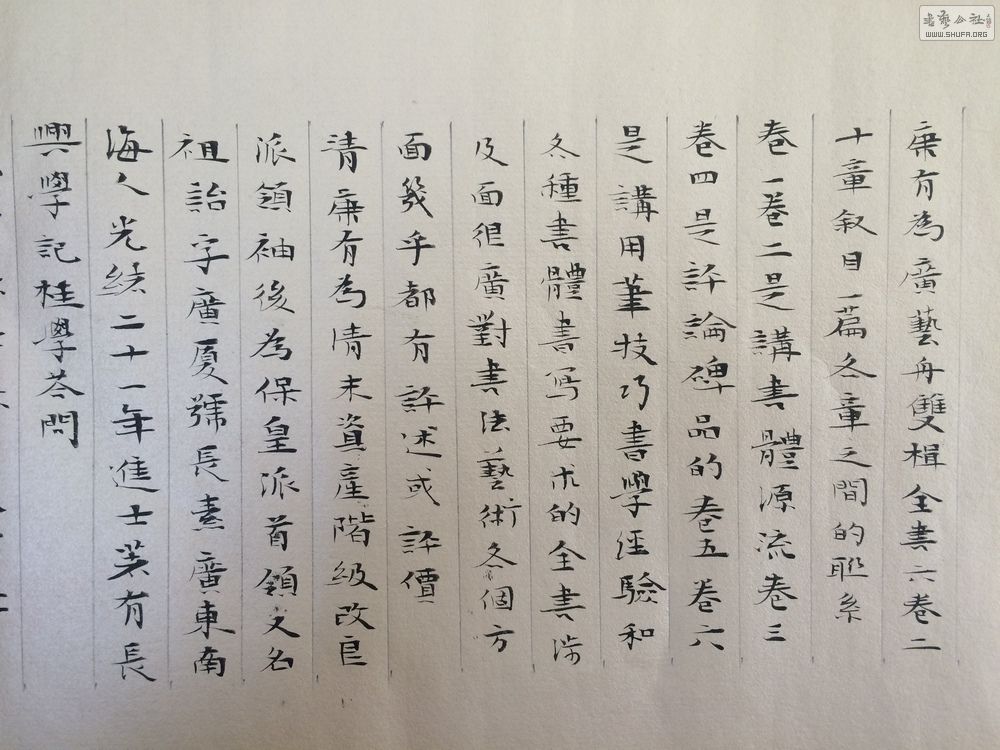 康有為廣藝舟雙楫全書六卷二
十章叙目一篇各章之間的联系
卷一卷二是講書體源流卷三
卷四是評論碑品的卷五卷六
是講用筆技巧書學経驗和
各種書體書写要求的全書涉
及面很廣對書法藝術各個方
面幾乎都有評述或評價
清康有為清末資產階級改良
派領袖後為保皇派首領又名
祖詒字廣厦號長素廣東南
海人光緒二十一年進士著有長
興學記桂學荅問
書藝公社
WWW.SHUFA.ORG